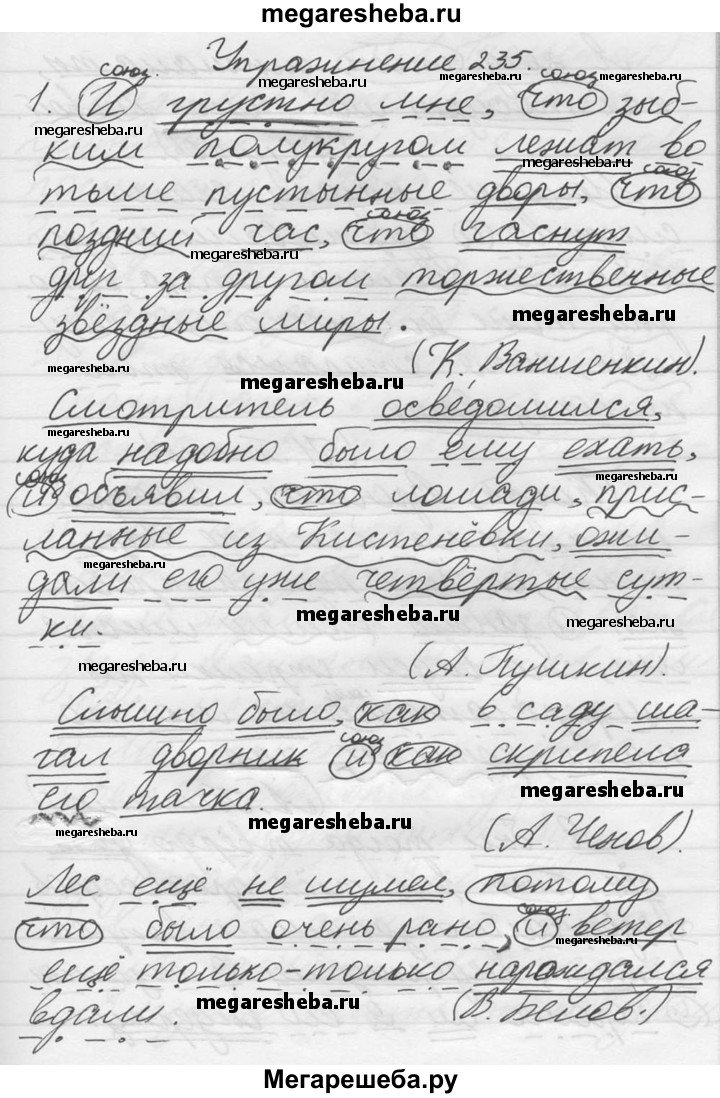 megaresheba.ru
Упражнение 235.
союз. megaresheba.ru союз megaresheba.ru
1. И грустно мне, что зыб-
megaresheba.ru megaresheba.ru
ким полукругом лежат во
megaresheba.ru
тьме пустынные дворы, что
союз союз
поздний час, что гаснут
megaresheba.ru
друг за другом торжественные
звёздные миры. megaresheba.ru
(К. Ваншенкин).
megaresheba.ru megaresheba.ru
Смотритель осведомился,
megaresheba.ru
куда надобно было ему ехать,
союз megaresheba.ru
и объявил, что лошади, прис-
ланные из Кистенёвки, ожи-
дали его уже четвёртые сут-
megaresheba.ru megaresheba.ru
ки.
megaresheba.ru (А. Пушкин).
Слышно было, как в саду ша-
союз
гал дворник и как скрипела
его тачка. megaresheba.ru
megaresheba.ru megaresheba.ru
(А. Чехов).
Лес ещё не шумел, потому
союз
что было очень рано, и ветер
megaresheba.ru
ещё только-только нарождался
вдали. megaresheba.ru (В. Белов.)
Мегарешеба.ру